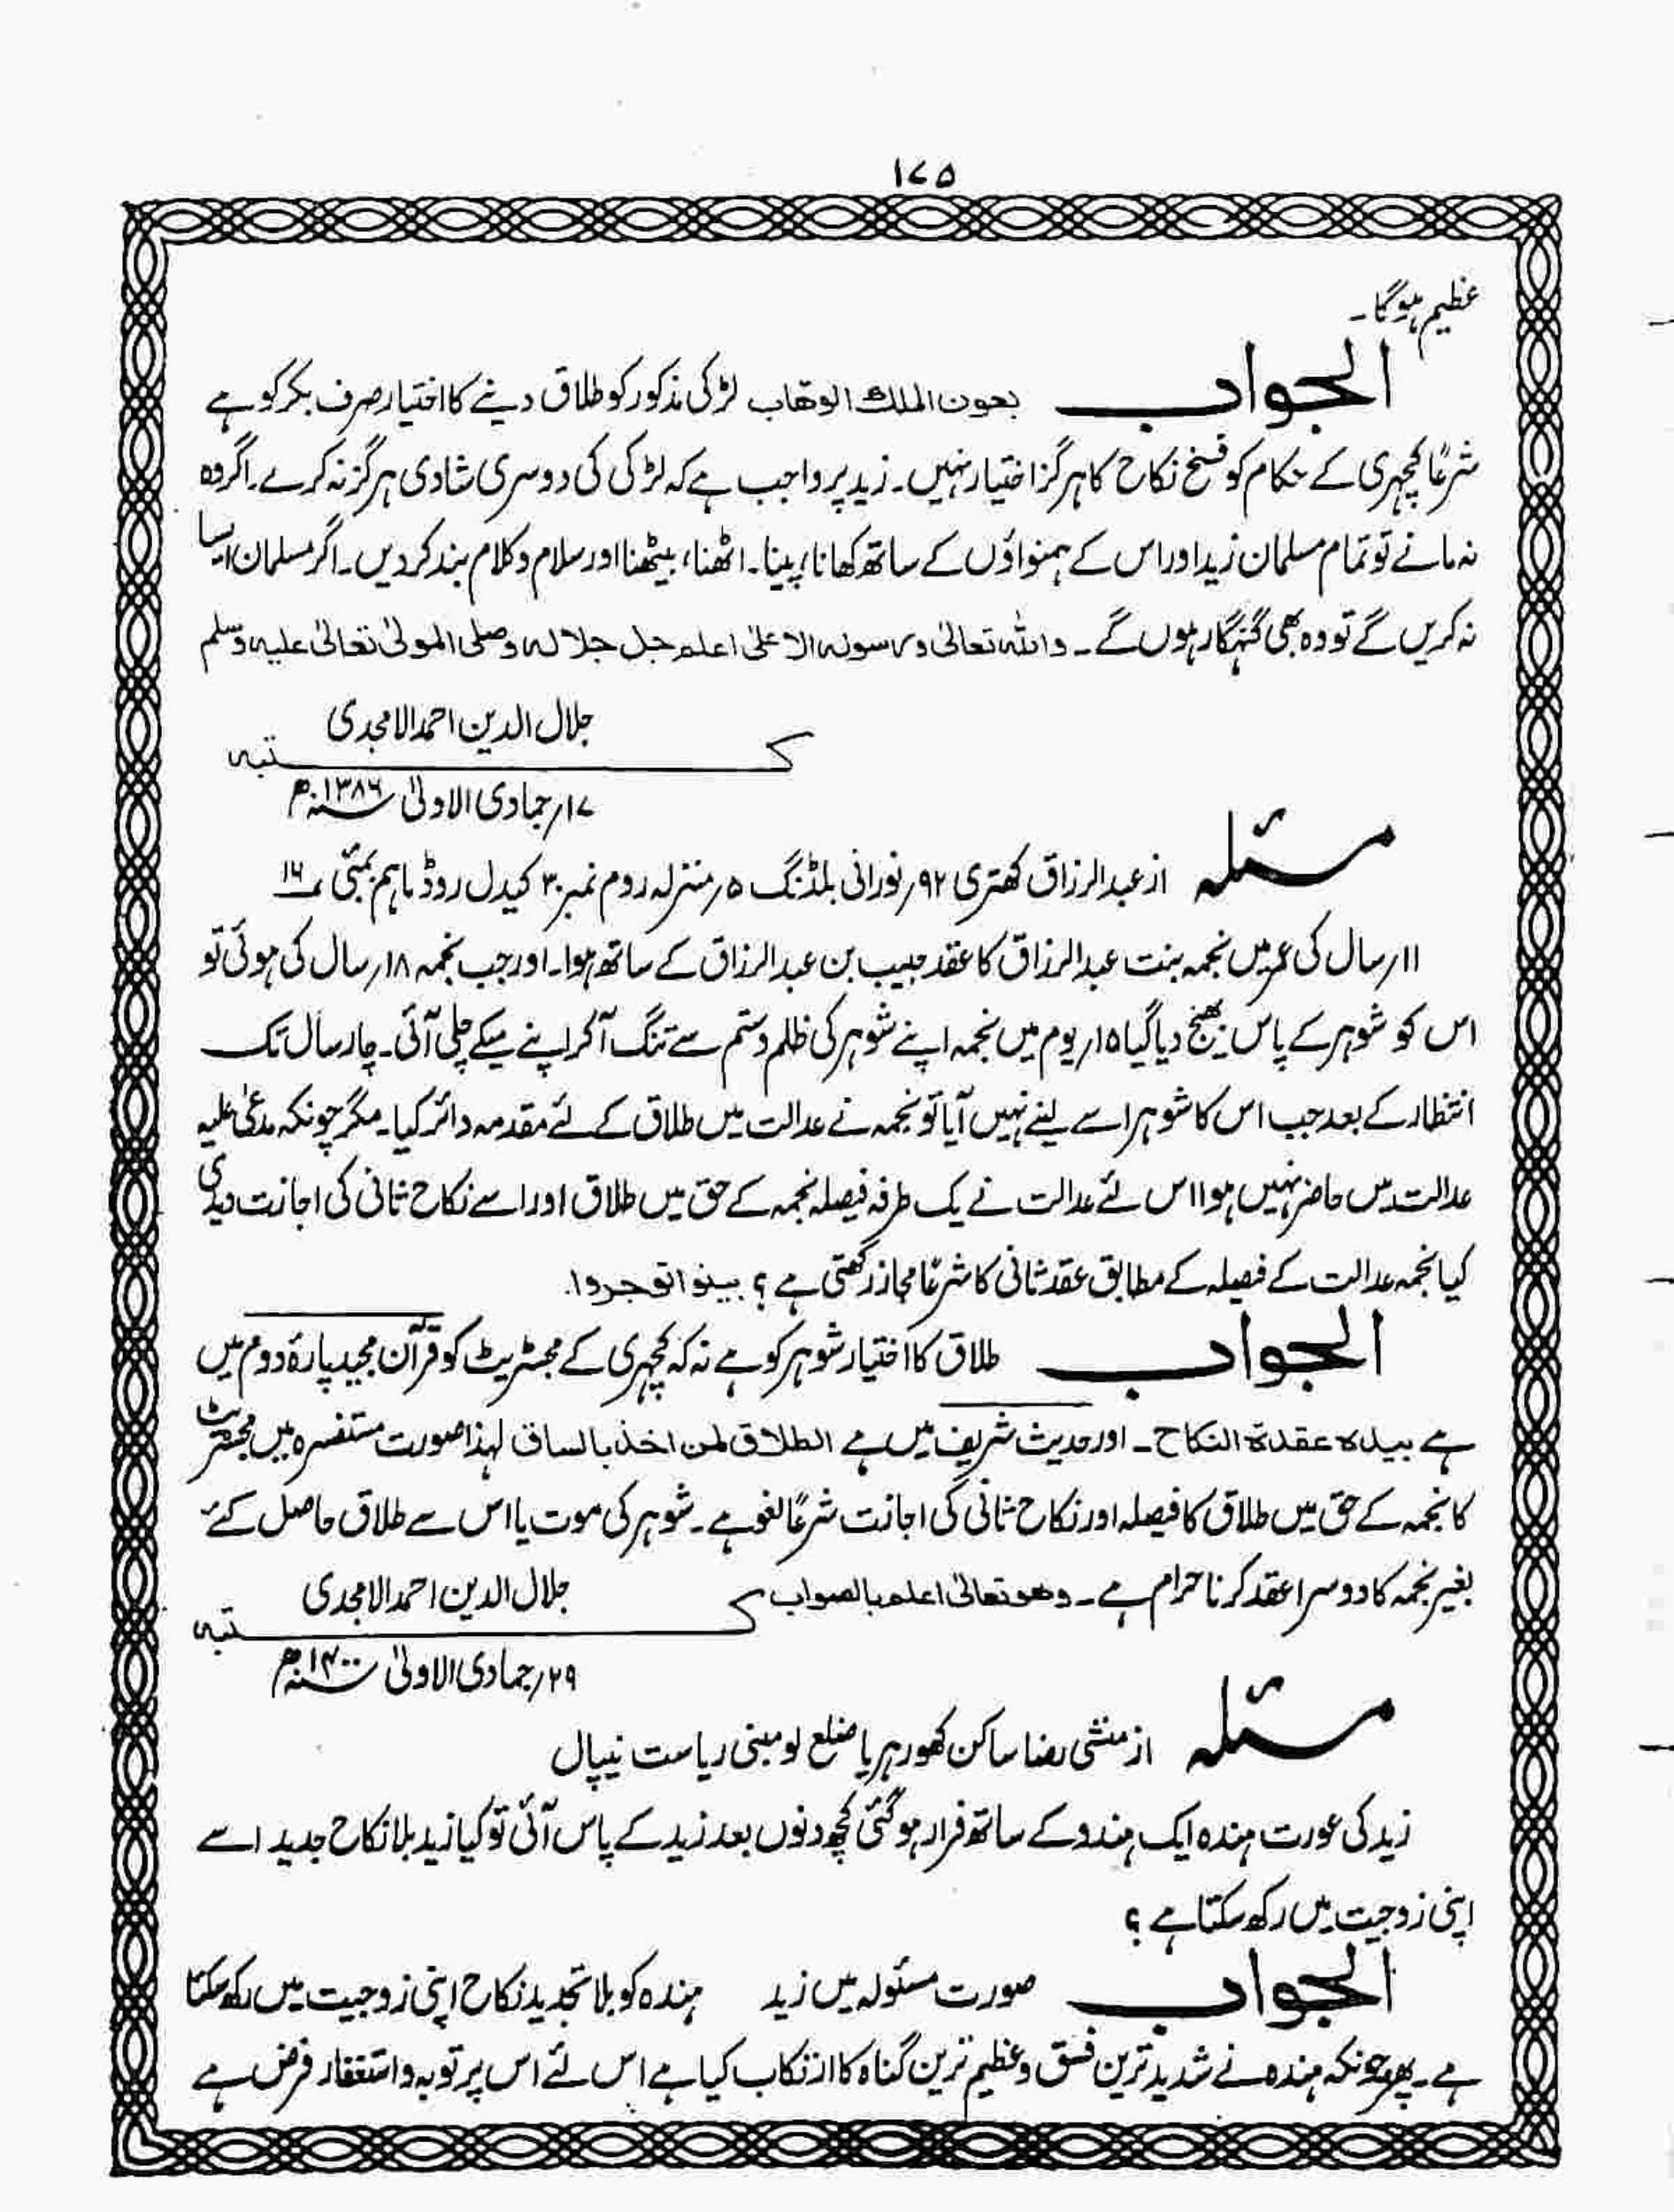 ۱۷۵
عظیم ہوگا۔
الجواب بعون الملک الوھاب لڑکی مذکور کو طلاق دینے کا اختیار صرف بکر کو ہے
شرعًا کچہری کے حکام کو فسخ نکاح کا ہرگز اختیار نہیں۔ زید پر واجب ہے کہ لڑکی کی دوسری شادی ہرگز نہ کرے۔ اگر وہ
نہ مانے تو تمام مسلمان زید اور اس کے ہمنواؤں کے ساتھ کھانا، پینا۔ اٹھنا، بیٹھنا اور سلام و کلام بند کر دیں۔ اگر مسلمان ایسا
نہ کریں گے تو وہ بھی گنہگار ہوں گے۔ واللہ تعالیٰ ورسولہ الاعلیٰ اعلم جل جلالہ وصلی المولیٰ تعالیٰ علیہ وسلم
جلال الدین احمد الامجدی
کتبہ
۱۷؍ جمادی الاولیٰ سنہ ۱۳۸۶ھ
مسئلہ از عبد الرزاق کھتری ۹۲؍ نورانی بلڈنگ ۵؍ منزلہ روم نمبر ۳۰ کیدل روڈ ماہم بمبئی ۱۶
۱۱؍ سال کی عمر میں نجمہ بنت عبد الرزاق کا عقد حبیب بن عبد الرزاق کے ساتھ ہوا۔ اور جب نجمہ ۱۸؍ سال کی ہوئی تو
اس کو شوہر کے پاس بھیج دیا گیا ۱۵؍ یوم میں نجمہ اپنے شوہر کی ظلم و ستم سے تنگ آکر اپنے میکے چلی آئی۔ چار سال تک
انتظار کے بعد جب اس کا شوہر اسے لینے نہیں آیا تو نجمہ نے عدالت میں طلاق کے لئے مقدمہ دائر کیا۔ مگر چونکہ مدعیٰ علیہ
عدالت میں حاضر نہیں ہوا اس لئے عدالت نے یک طرفہ فیصلہ نجمہ کے حق میں طلاق اور اسے نکاح ثانی کی اجازت دیدی
کیا نجمہ عدالت کے فیصلہ کے مطابق عقد ثانی کا شرعًا مجاز رکھتی ہے ؟ بینوا توجروا.
الجواب طلاق کا اختیار شوہر کو ہے نہ کہ کچہری کے مجسٹریٹ کو قرآن مجید پارۂ دوم میں
ہے بیدہ عقدة النکاح۔ اور حدیث شریف میں ہے الطلاق لمن اخذ بالساق لہٰذا صورت مستفسرہ میں مجسٹریٹ
کا نجمہ کے حق میں طلاق کا فیصلہ اور نکاح ثانی کی اجازت شرعًا لغو ہے۔ شوہر کی موت یا اس سے طلاق حاصل کئے
بغیر نجمہ کا دوسرا عقد کرنا حرام ہے۔ وھو تعالیٰ اعلم بالصواب
جلال الدین احمد الامجدی
کتبہ
۲۹؍ جمادی الاولیٰ سنہ ۱۴۰۰ھ
مسئلہ از منشی رضا ساکن کھورہریا ضلع لومبنی ریاست نیپال
زید کی عورت ہندہ ایک ہندو کے ساتھ فرار ہو گئی کچھ دنوں بعد زید کے پاس آئی تو کیا زید بلا نکاح جدید اسے
اپنی زوجیت میں رکھ سکتا ہے ؟
الجواب صورت مسئولہ میں زید ہندہ کو بلا تجدید نکاح اپنی زوجیت میں رکھ سکتا
ہے۔ پھر چونکہ ہندہ نے شدید ترین فسق و عظیم ترین گناہ کا ارتکاب کیا ہے اس لئے اس پر توبہ و استغفار فرض ہے